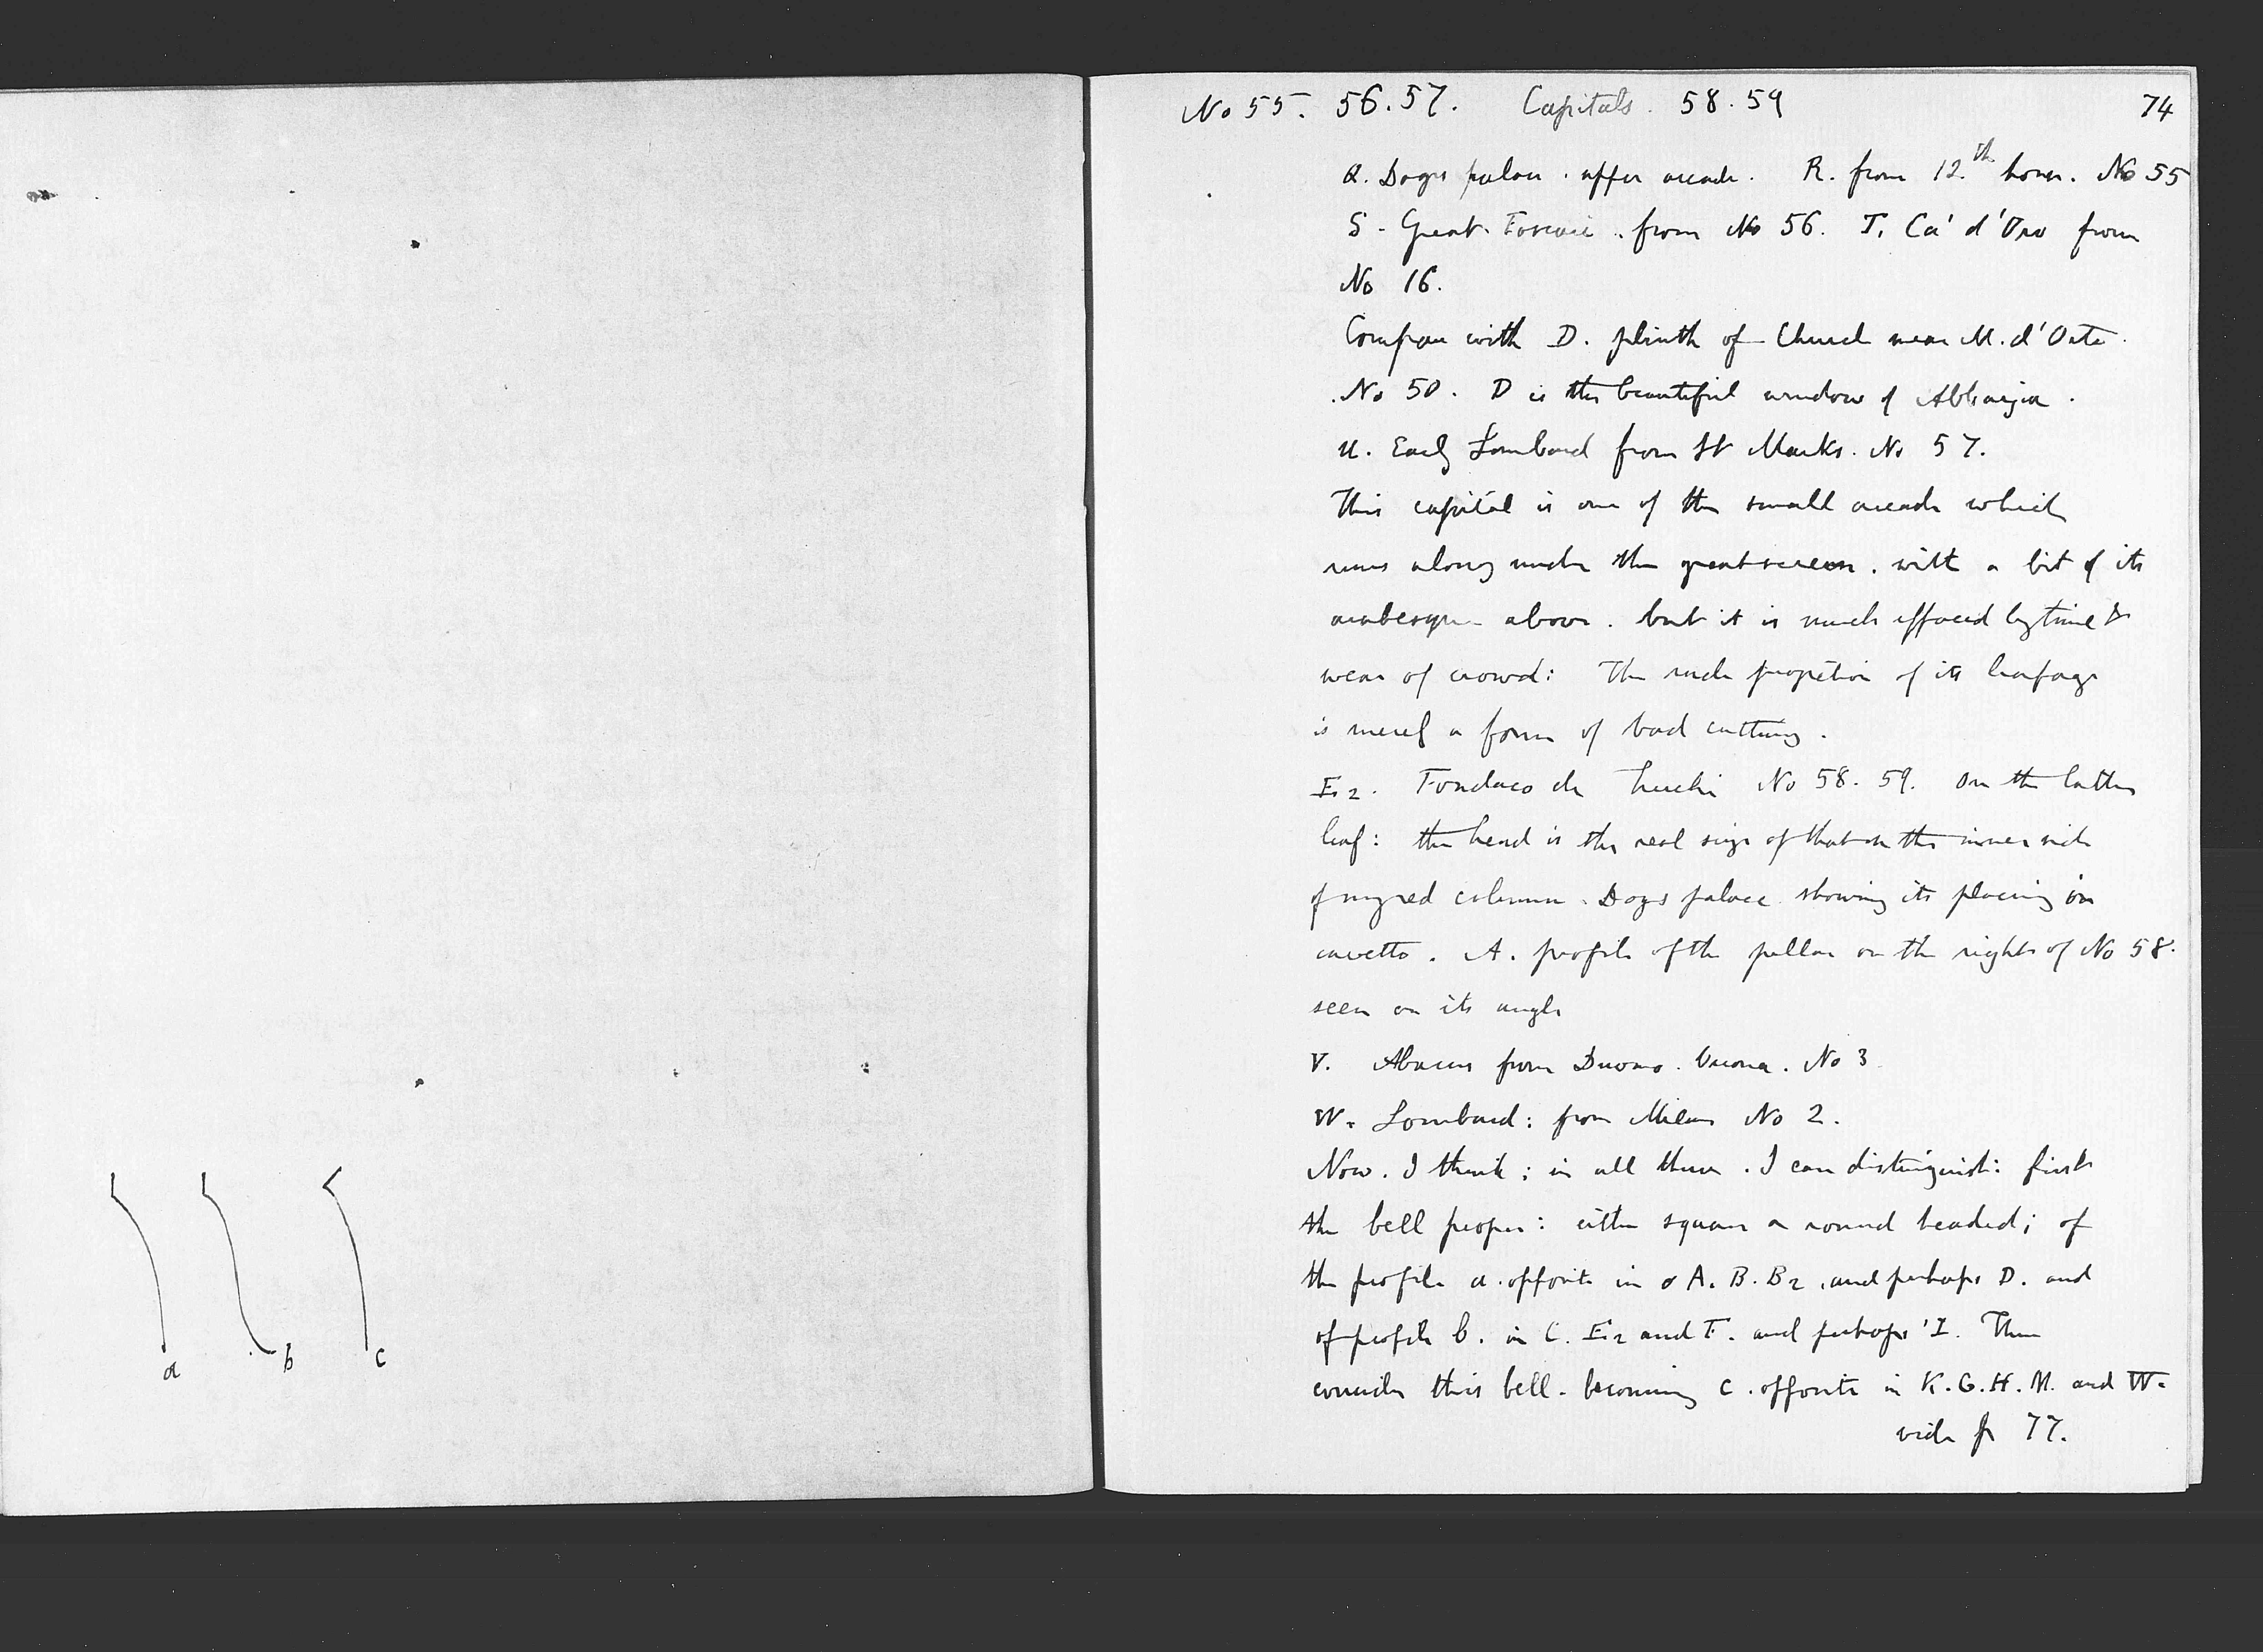 a
b
c
No 55. 56.57. Capitals. 58.59
74
Q. Doges palace. upper arcade. R. from 12.th house. No 55
S - Great Foscari. from No 56. T. Ca' d'Oro from
No 16.
Compare with D. plinth of Church near M. d'Orto.
No 50. D is the beautiful window of Abbazia.
U. Early Lombard from St Marks. No 57.
This capital is one of the small arcade which
runs along under the great screen. with a bit of its
arabesque above. but it is much effaced by time &
wear of crowd: The rude propetion of its leafage
is merely a form of bad cutting.
E.2. Fondaco de Turchi No 58. 59. On the latter
leaf: the head is the real size of that on the inner side
of my red column. Doges palace showing its placing in
cavetto. A. profile of the pillar on the right of No 58.
seen on its angle
V. Abacus from Duomo. Verona. No 3
W. Lombard: from Milan No 2.
Now. I think; in all these. I can distinguish: first
the bell proper: either square or round headed; of
the profile a. opposite in A. B. B2. and perhaps D. and
of profile b. in C. E.2 and F. and perhaps I. Then
consider this bell. becoming c. opposite in K. G. H. M. and W.
vide p 77.